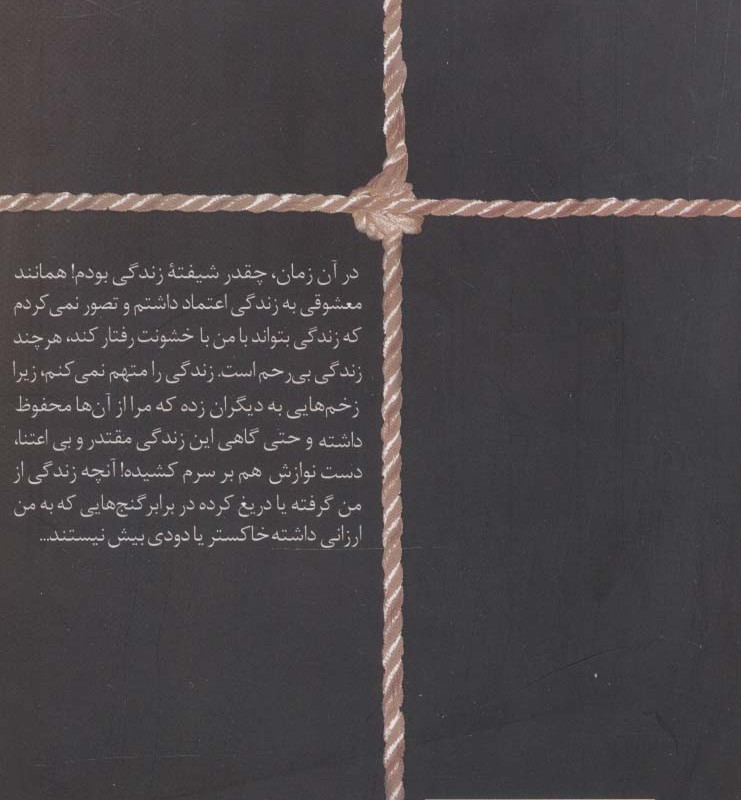 در آن زمان، چقدر شیفتهٔ زندگی بودم! همانند
معشوقی به زندگی اعتماد داشتم و تصور نمی‌کردم
که زندگی بتواند با من با خشونت رفتار کند، هرچند
زندگی بی‌رحم است. زندگی را متهم نمی‌کنم، زیرا
زخم‌هایی به دیگران زده که مرا از آن‌ها محفوظ
داشته و حتی گاهی این زندگی مقتدر و بی اعتنا،
دست نوازش هم بر سرم کشیده! آنچه زندگی از
من گرفته یا دریغ کرده در برابر گنج‌هایی که به من
ارزانی داشته خاکستر یا دودی بیش نیستند...